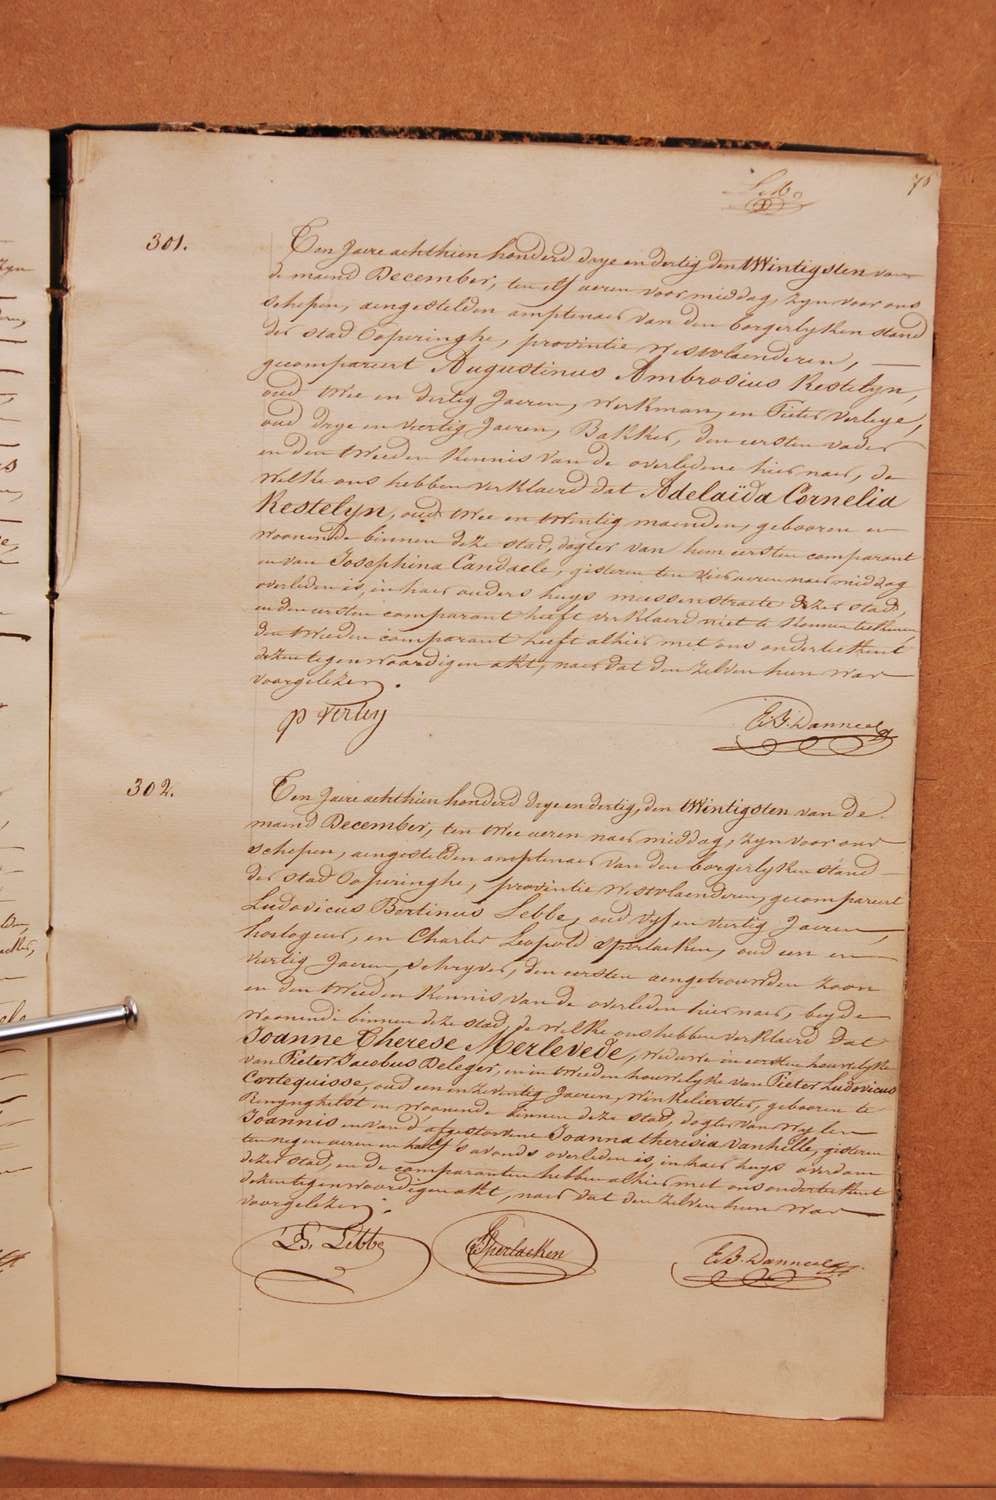 78
301.
Ten Jaere achthien honderd drye en dertig den twintigsten van
de maend December, ten elf ueren voor middag, zyn voor ons
schepen, aengestelden amptenaer van den borgerlyken stand
der stad Poperinghe, provintie Westvlaenderen,
gecompareert Augustinus Ambrosius Kestelyn,
oud twee en dertig Jaeren, werkman, en Pieter Verleye,
oud drye en viertig Jaeren, Bakker, den eersten vader
en den tweeden kennis van de overledene hier naer, de
welke ons hebben verklaerd dat Adelaïda Cornelia
Kestelyn, oud twee en twintig maenden, gebooren en
woonende binnen deze stad, dogter van hem eersten comparant
en van Josephina Candaele, gisteren ten vier ueren naer middag
overleden is, in haer ouders huys messenstraete dezer stad,
en den eersten comparant heeft verklaerd niet te konnen teekenen,
den tweeden comparant heeft alhier met ons onderteekent
dezen tegenwoordigen akt, naer dat den zelven hun was
voorgelezen.
p verley
E.B. Danneel
302.
Ten Jaere achthien honderd drye en dertig, den twintigsten van de
maend December, ten twee ueren naer middag, zyn voor ons
schepen, aengestelden amptenaer van den borgerlyken stand
der stad Poperinghe, provintie Westvlaenderen, gecompareert
Ludovicus Bertinus Lebbe, oud vyf en viertig Jaeren,
horlogeur, en Charles Leopold Sperlaeken, oud een en
viertig Jaeren, schryver, den eersten aengetrouwden zoon
en den tweeden kennis van de overleden hier naer, beyde
woonende binnen deze stad, de welke ons hebben verklaerd dat
Joanne Therese Merlevede, weduwe in eersten houwelyke
van Pieter Jacobus Deleger, en in tweeden houwelyke van Pieter Ludovicus
Cortequisse, oud een en zeventig Jaeren, winkelierster, gebooren te
Renynghelst en woonende binnen deze stad, dogter van wylen
Joannis en van d'afgestorvene Joanna theresia Vanhille, gisteren
ten negen ueren en half s'avonds overleden is, in haer huys overdam
dezer stad, en de comparanten hebben alhier met ons onderteekent
dezen tegenwoordigen akt, naer dat den zelven hun was
voorgelezen.
L.B. Lebbe
Sperlaeken
E.B. Danneel